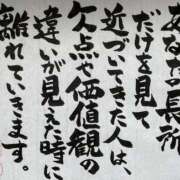 あなたの長所
だけを見て
近づいてきた人は、
欠点や価値観の
違いが見えた時に
離れていきます。